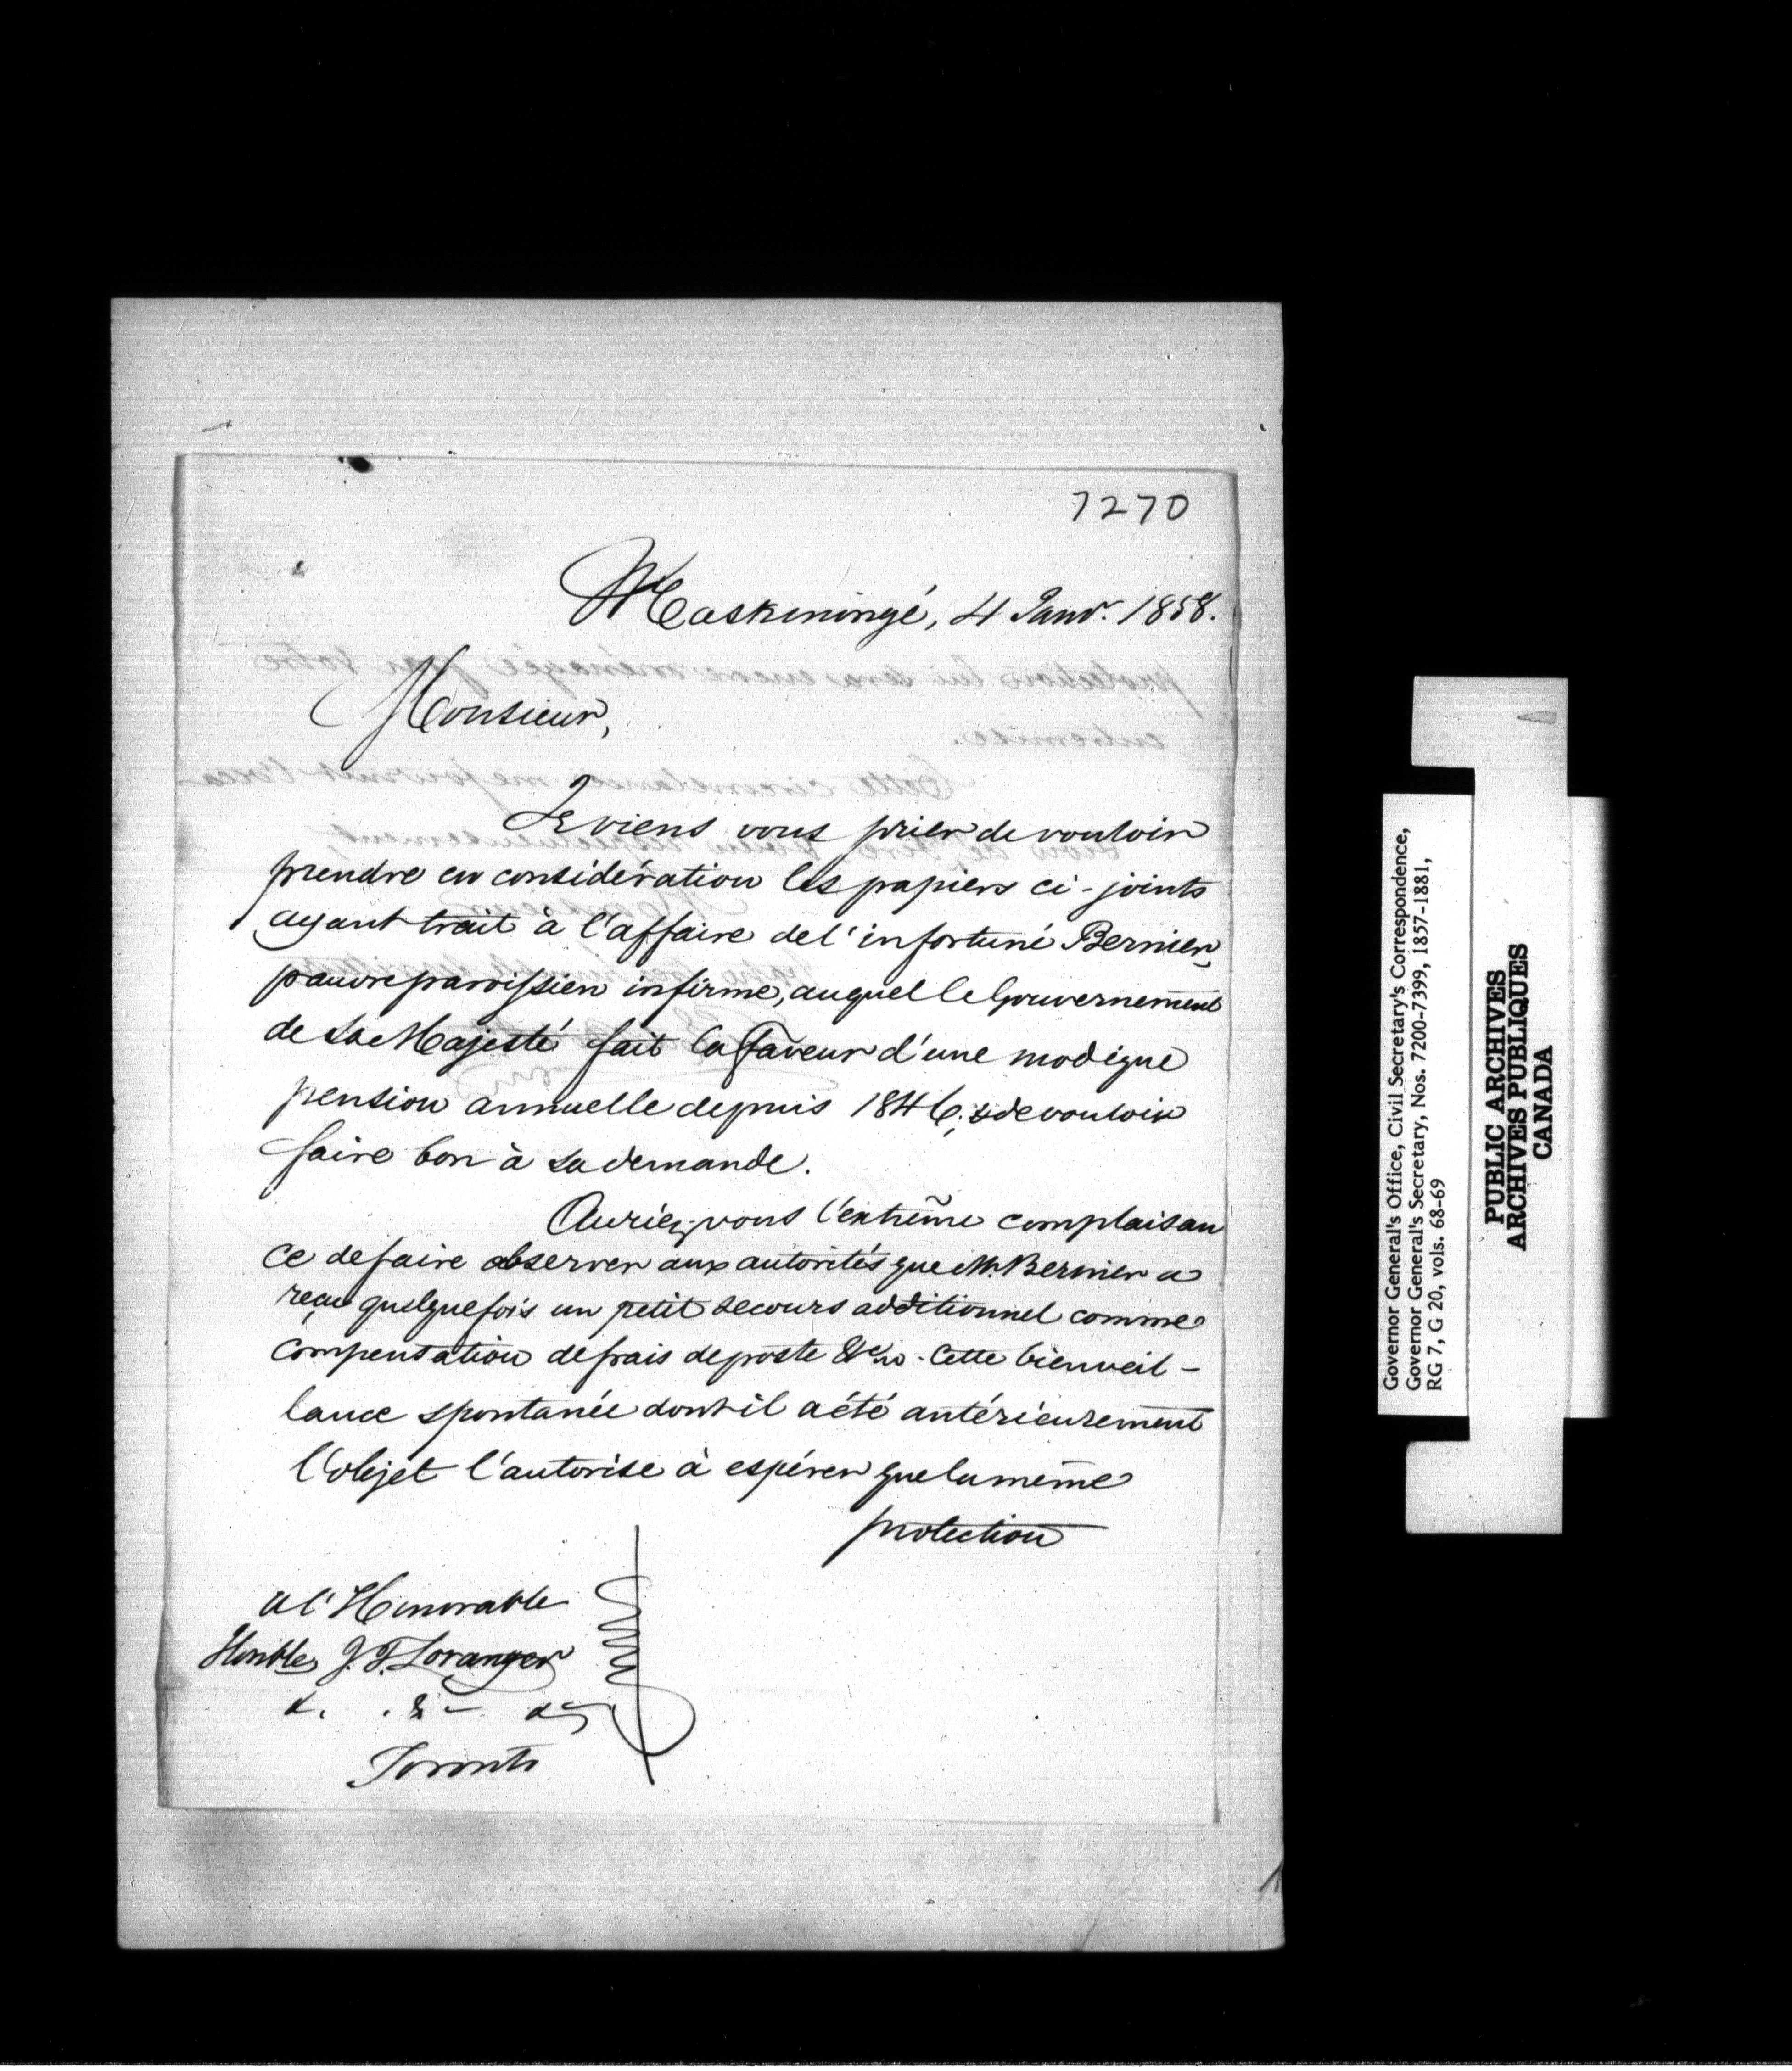 7270
Maskinongé, 4 Janvr. 1858.
Monsieur,
Je viens vous prier de vouloir
prendre en considération les papiers ci-joints
ayant trait à l'affaire de l'infortuné Bernier,
pauvre paroissien infirme, auquel le Gouvernement
de Sa Majesté fait la faveur d'une modique
pension annuelle depuis 1846; & de vouloir
faire bon à sa demande.
Auriez-vous l'extrême complaisan
ce de faire observer aux autorités que Mr. Bernier a
reçu quelquefois un petit secours additionnel comme
compensation de frais de poste &c. Cette bienveil-
lance spontanée dont il a été antérieurement
l'objet l'autorise à espérer que la même
protection
A l'Honorable
Honble J. T. Loranger
&. . &. &.
Toronto
Governor General's Office, Civil Secretary's Correspondence,
Governor General's Secretary, Nos. 7200-7399, 1857-1881,
RG 7, G 20, vols. 68-69
PUBLIC ARCHIVES
ARCHIVES PUBLIQUES
CANADA